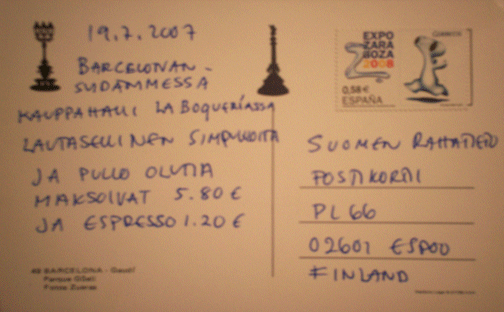 19.7.2007
BARCELONAN-
SYDÄMMESSA
KAUPPAHALLI LA BOQUERÍASSA
LAUTASELLINEN SIMPUKOITA
JA PULLO OLUTTA
MAKSOIVAT 5.80 €
JA ESPRESSO 1.20 €
49 BARCELONA - Gaudí
Parque Güell
Fisa
EXPO
ZARA
GOZA
2008
0,58 €
ESPAÑA
CORREOS
SUOMEN RAHATIETO
POSTIKORTTI
PL 66
02601 ESPOO
FINLAND